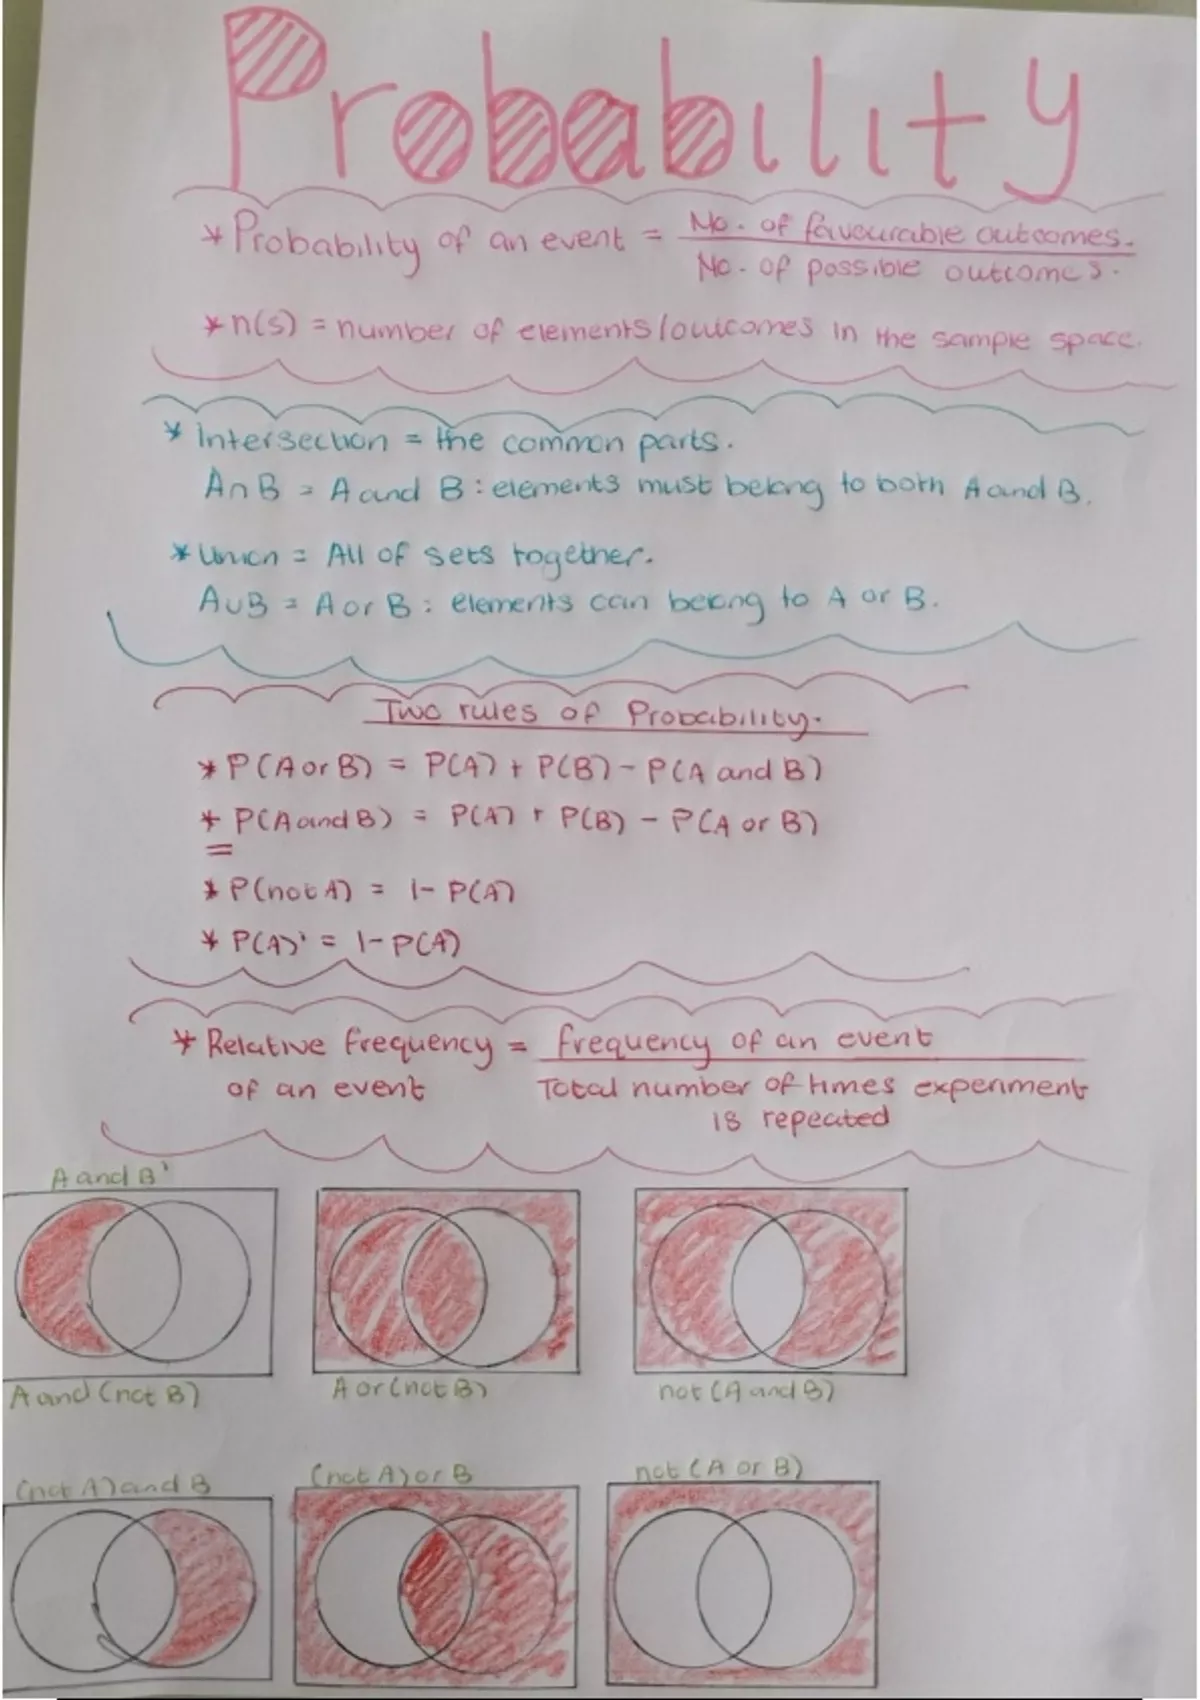 Probability
* Probability of an event = No. of favourable outcomes.
No. of possible outcomes.
* n(s) = number of elements/outcomes in the sample space.
* Intersection = the common parts.
A∩B = A and B : elements must belong to both A and B.
* Union = All of sets together.
A∪B = A or B : elements can belong to A or B.
Two rules of Probability.
* P(A or B) = P(A) + P(B) - P(A and B)
* P(A and B) = P(A) + P(B) - P(A or B)
* P(not A) = 1 - P(A)
* P(A)' = 1 - P(A)
* Relative frequency = frequency of an event
of an event Total number of times experiment
is repeated
A and B'
A and (not B)
A or (not B)
not (A and B)
(not A) and B
(not A) or B
not (A or B)